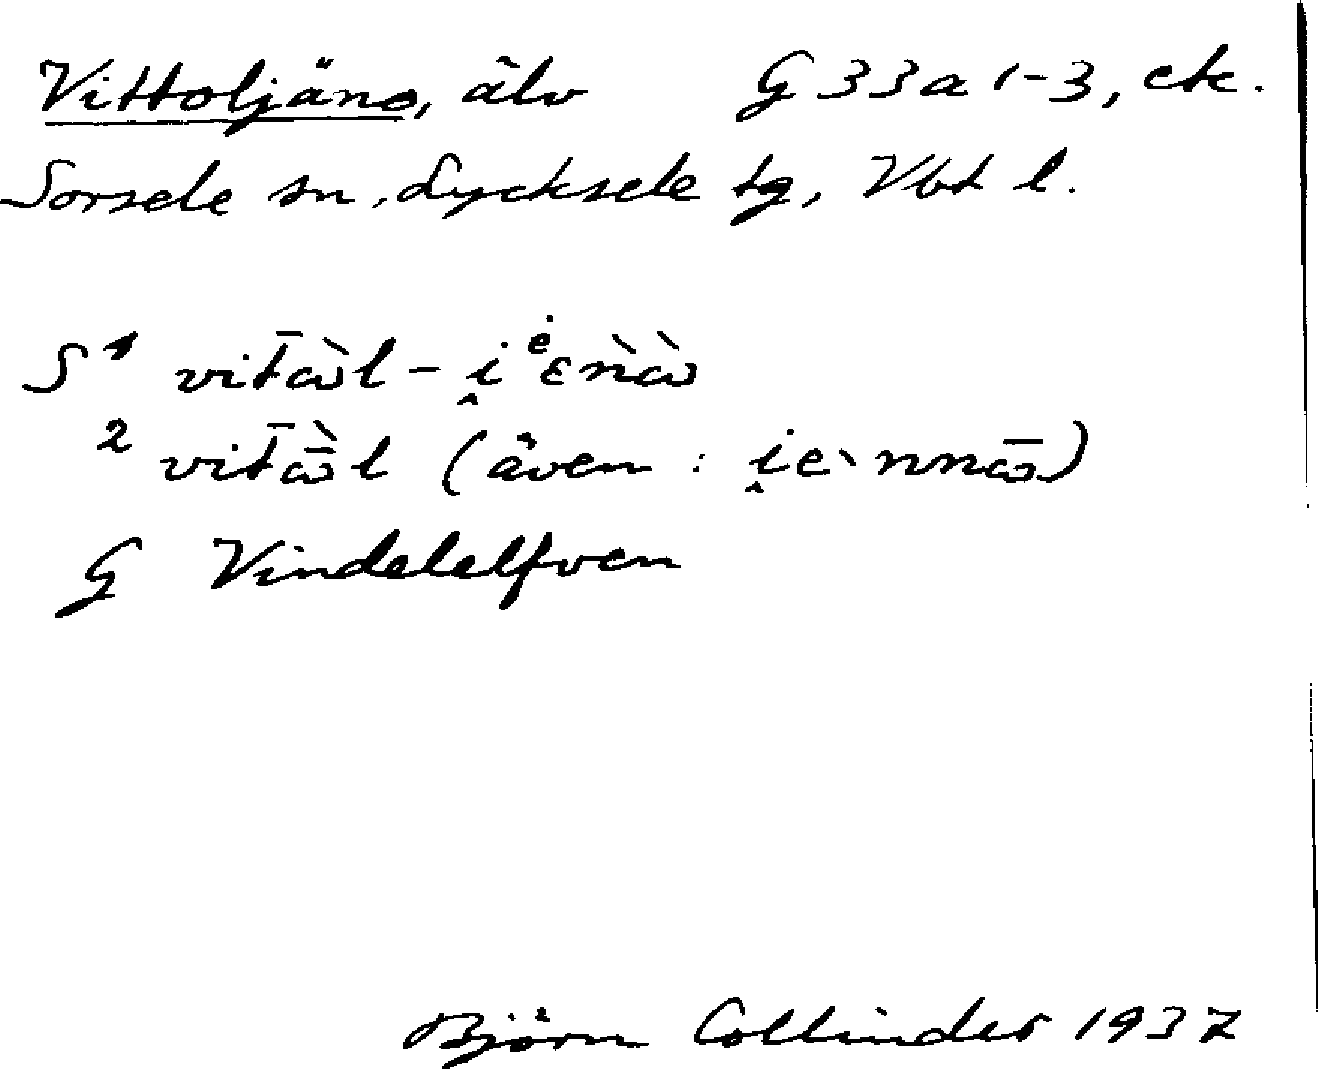 Vittoljäno, älv G 33a 1-3, etc.
Sorsele sn, Lycksele tg, Vbt l.
S¹ vit̄ɷ̀l - i̭ėεǹɷ̀
² vit̄ɷ̄̀l (även : i̭eˋnnɷ̄)
G Vindelelfven
Björn Collinder 1937